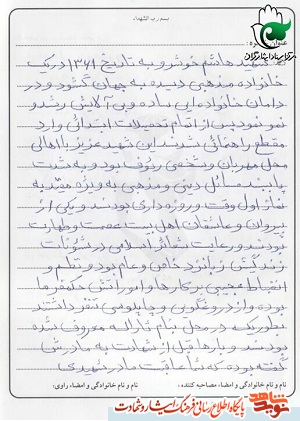 بسم رب الشهداء
عنوان خاطره:
شهید هاشم خوشرو به تاریخ ۱۳۶۱ در یک
خانواده مذهبی دیده به جهان گشود و در
دامان خانواده ایی ساده و بی آلایش رشد و
نمو نمود پس از اتمام تحصیلات ابتدائی وارد
مقطع راهنمائی شدند این شهید عزیز با اهالی
محل مهربان و شخصی رئوف بود و به شدت
پایبند مسائل دینی و مذهبی به ویژه مقید به
نماز اول وقت و روزه داری بودند و یکی از
پیروان و عاشقان اهل بیت عصمت و طهارت
بودند و رعایت شعائر اسلامی در شئونات
زندگیش زبانزد خاص و عام بود و نظم و
انضباط عجیبی بر کارها و امورش حکمفرما
بوده و از دروغگویی و چاپلوسی تنفر داشتند
بطوریکه در محل بنام ثارالله معروف شده
بودند و بارها قبل از شهادت به مادرش
گفته بوده که شما عاقبت مادر شهیدی
نام و نام خانوادگی و امضاء مصاحبه کننده:
نام و نام خانوادگی و امضاء راوی:
نوید شاهد
پایگاه اطلاع رسانی فرهنگ ایثار و شهادت